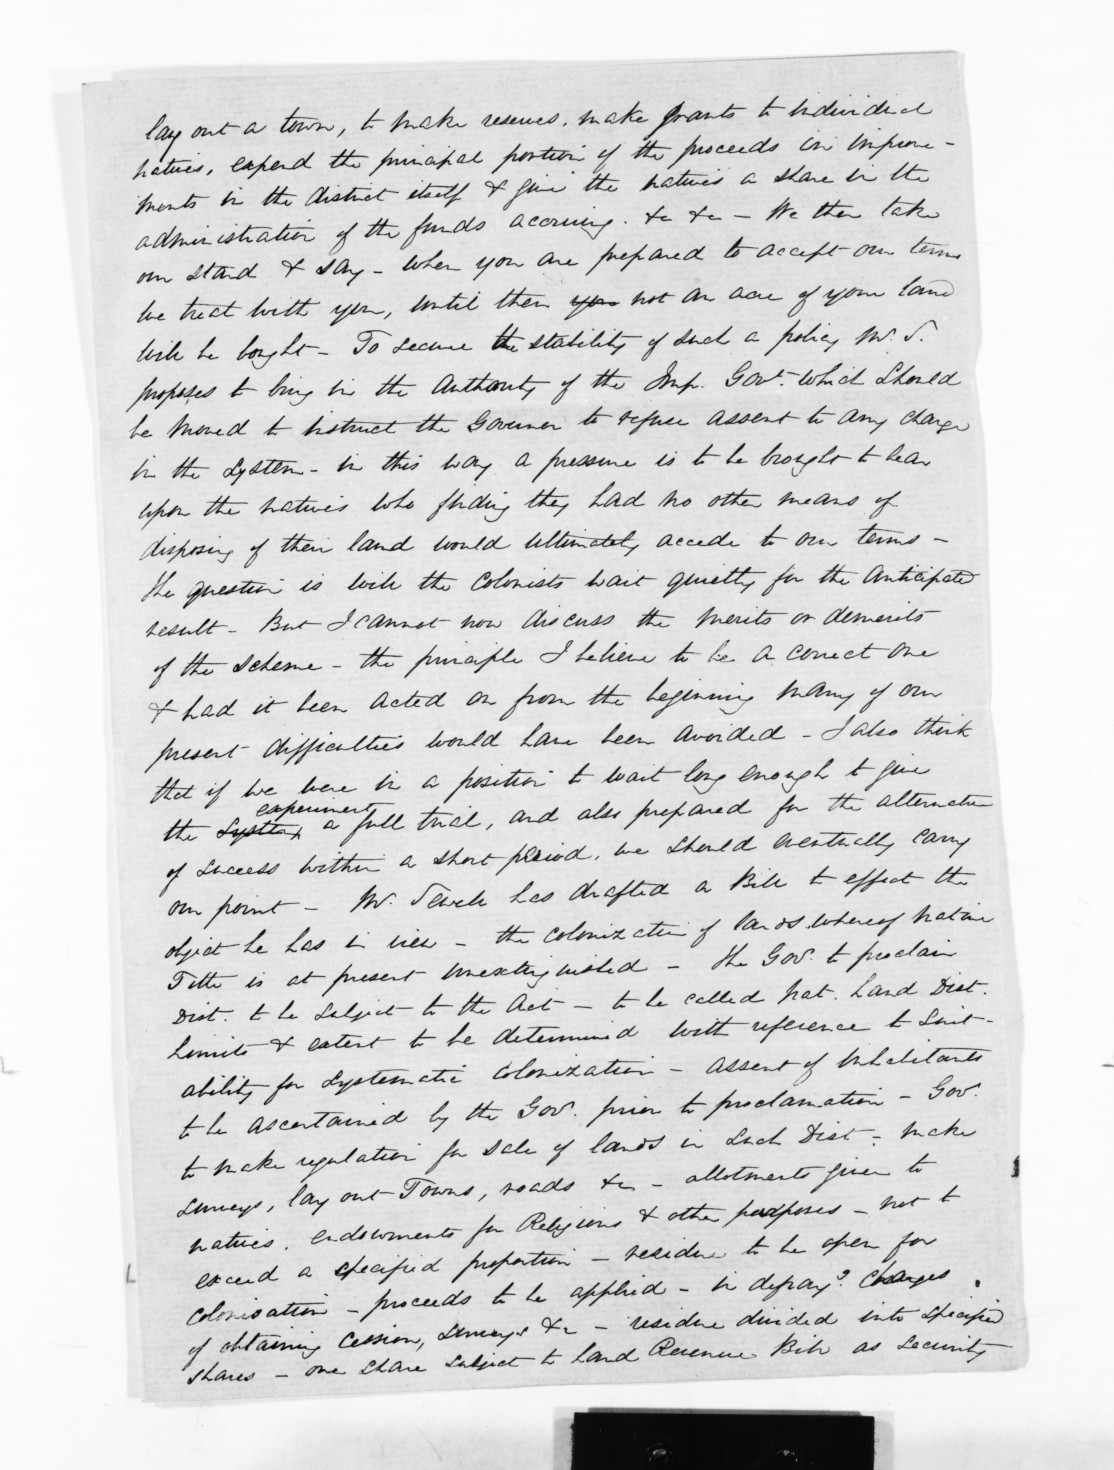 lay out a town, to make reserves, make grants to individual
natives, expend the principal portion of the proceeds in improve-
ments in the district itself & give the natives a share in the
administration of the funds accruing. &c &c - We then take
our stand & say - when you are prepared to accept our terms
we treat with you, until then you not an acre of your land
will be bought - To secure the stability of such a policy Mr. S.
proposes to bring in the authority of the Imp. Govt. which should
be moved to instruct the Governor to refuse assent to any change
in the system - in this way a pressure is to be brought to bear
upon the natives who finding they had no other means of
disposing of their land would ultimately accede to our terms -
The question is will the colonists wait quietly for the anticipated
result - But I cannot now discuss the merits or demerits
of the scheme - the principle I believe to be a correct one
& had it been acted on from the beginning many of our
present difficulties would have been avoided - I also think
that if we were in a position to wait long enough to give
experiment
the system a full trial, and also prepared for the alternative
of success within a short period, we should eventually carry
our point - Mr. Sewell has drafted a Bill to effect the
object he has in view - the colonization of lands whereof Native
Title is at present unextinguished - The Gov. to proclaim
Dist. to be subject to the Act - to be called Nat. Land Dist.
Limits & extent to be determined with reference to suit-
ability for systematic colonization - assent of inhabitants
to be ascertained by the Gov. prior to proclamation - Gov.
to make regulation for sale of lands in such Dist - make
surveys, lay out Towns, roads &c - allotments given to
natives, endowments for Religious & other purposes - not to
exceed a specified proportion - residue to be open for
colonisation - proceeds to be applied - in defrayg. charges
of obtaining cession, surveys &c - residue divided into specified
shares - one share subject to Land Revenue Bill as security